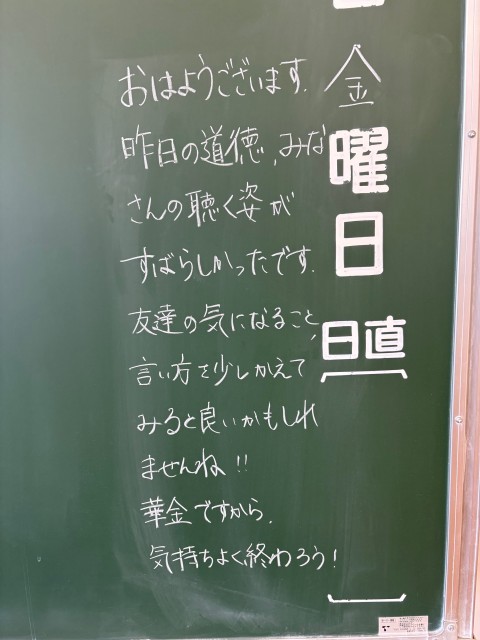 おはようございます.
昨日の道徳,みな
さんの聴く姿が
すばらしかったです.
友達の気になること,
言い方を少しかえて
みると良いかもしれ
ませんね!!
華金ですから.
気持ちよく終わろう!
金
曜
日
日直